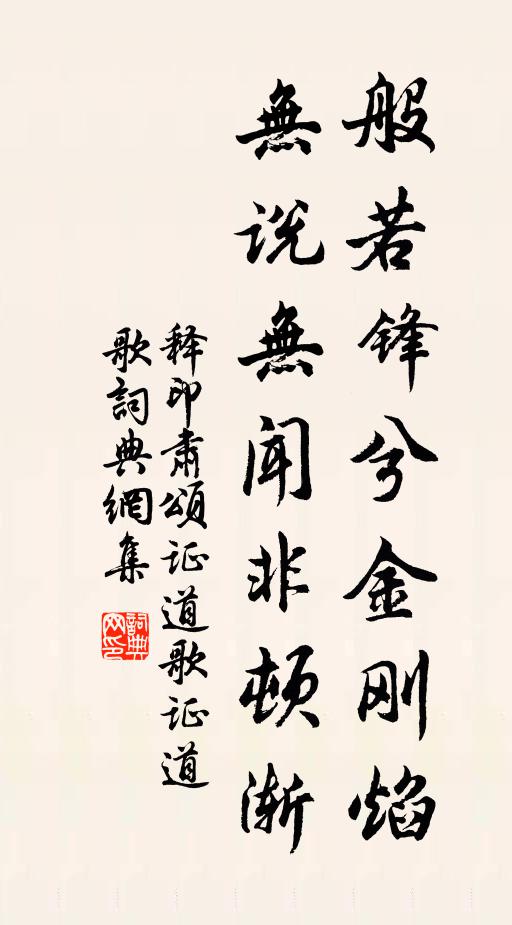 般若锋兮金刚焰
無说無闻非顿渐
释印肃颂证道歌证道
歌詞典網集
詞典网印